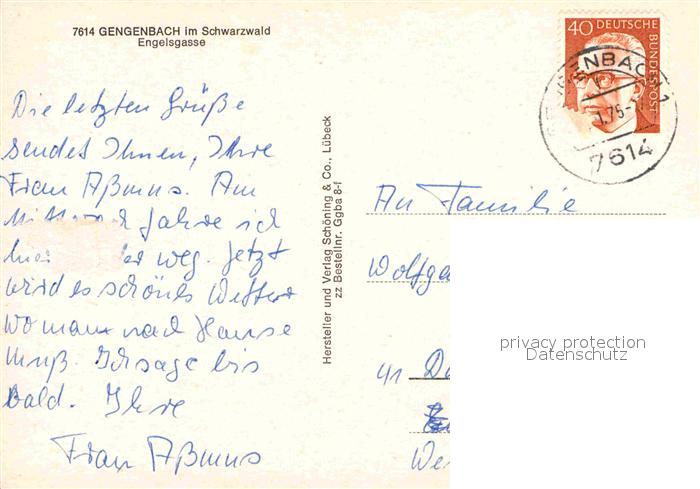 7614 GENGENBACH im Schwarzwald
Engelsgasse
Die letzten Grüße
sendet Ihnen, Ihre
Frau Aßmus. Am
Mittwoch fahre ich
hier weg. Jetzt
wird es schönes Wetter
wo man nach Hause
muß. Ich sage bis
bald. Ihre
Frau Aßmus
Hersteller und Verlag Schöning & Co., Lübeck
zz Bestellnr. Ggba 8-f
40 DEUTSCHE BUNDESPOST
GENGENBACH 1
.1.75-
7614
An Familie
Wolfga
privacy protection
Datenschutz
41 Du
We